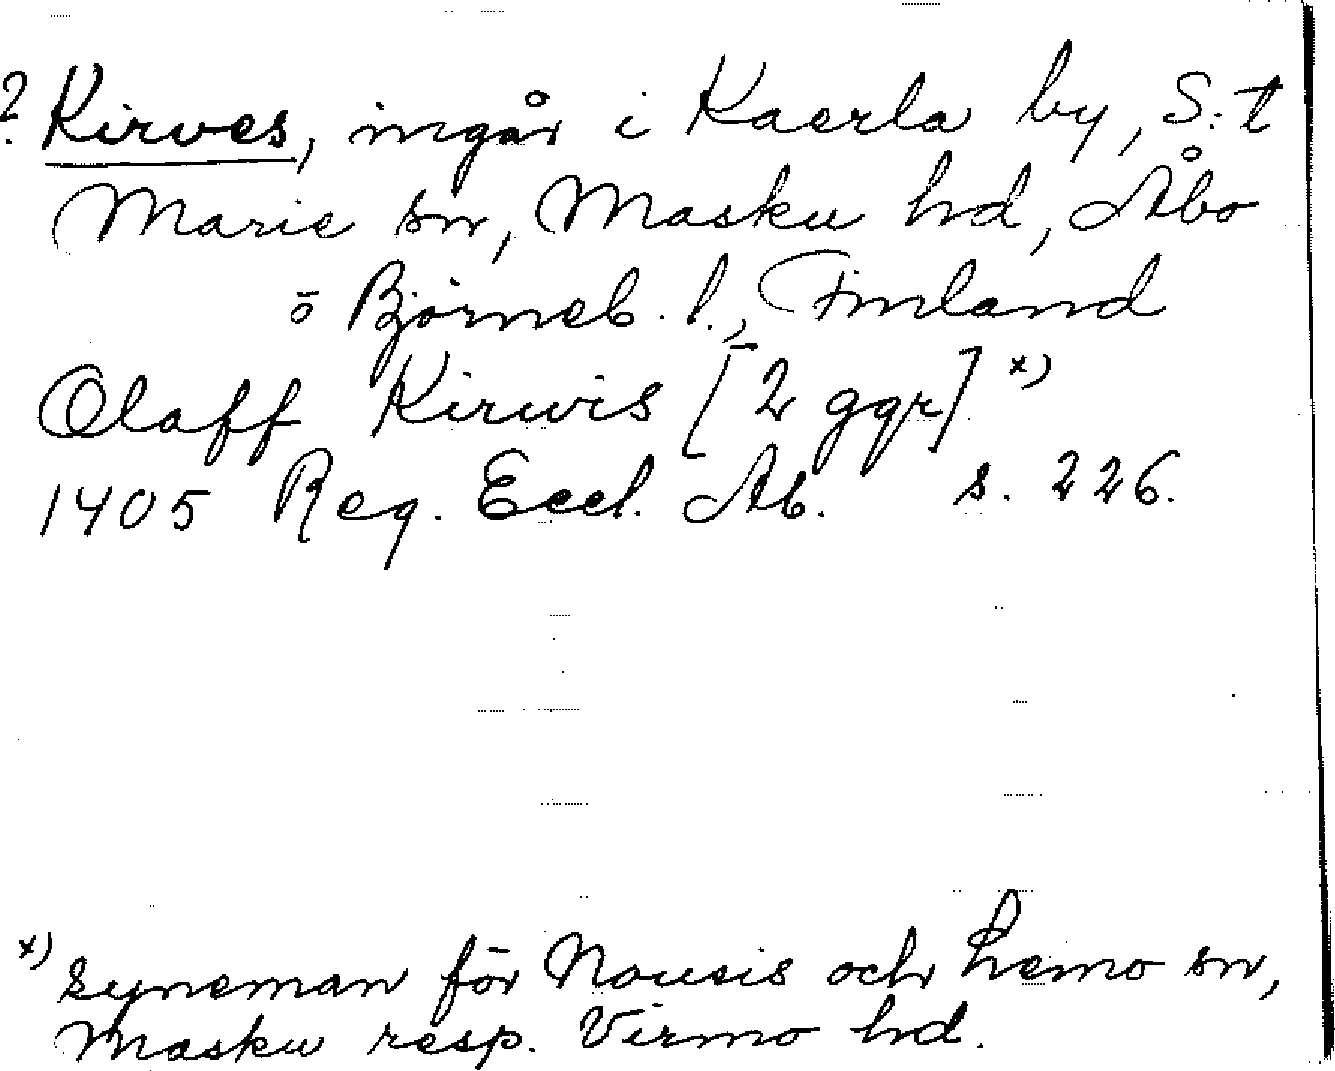 ? Kirves, ingår i Kaerla by, S:t
Marie sn, Masku hd, Åbo
o Björneb. l., Finland
Olaff Kirwis [2 ggr] x)
1405 Reg. Eccl. Ab. s. 226.
x) syneman för Nousis och Lemo sn,
Masku resp. Virmo hd.